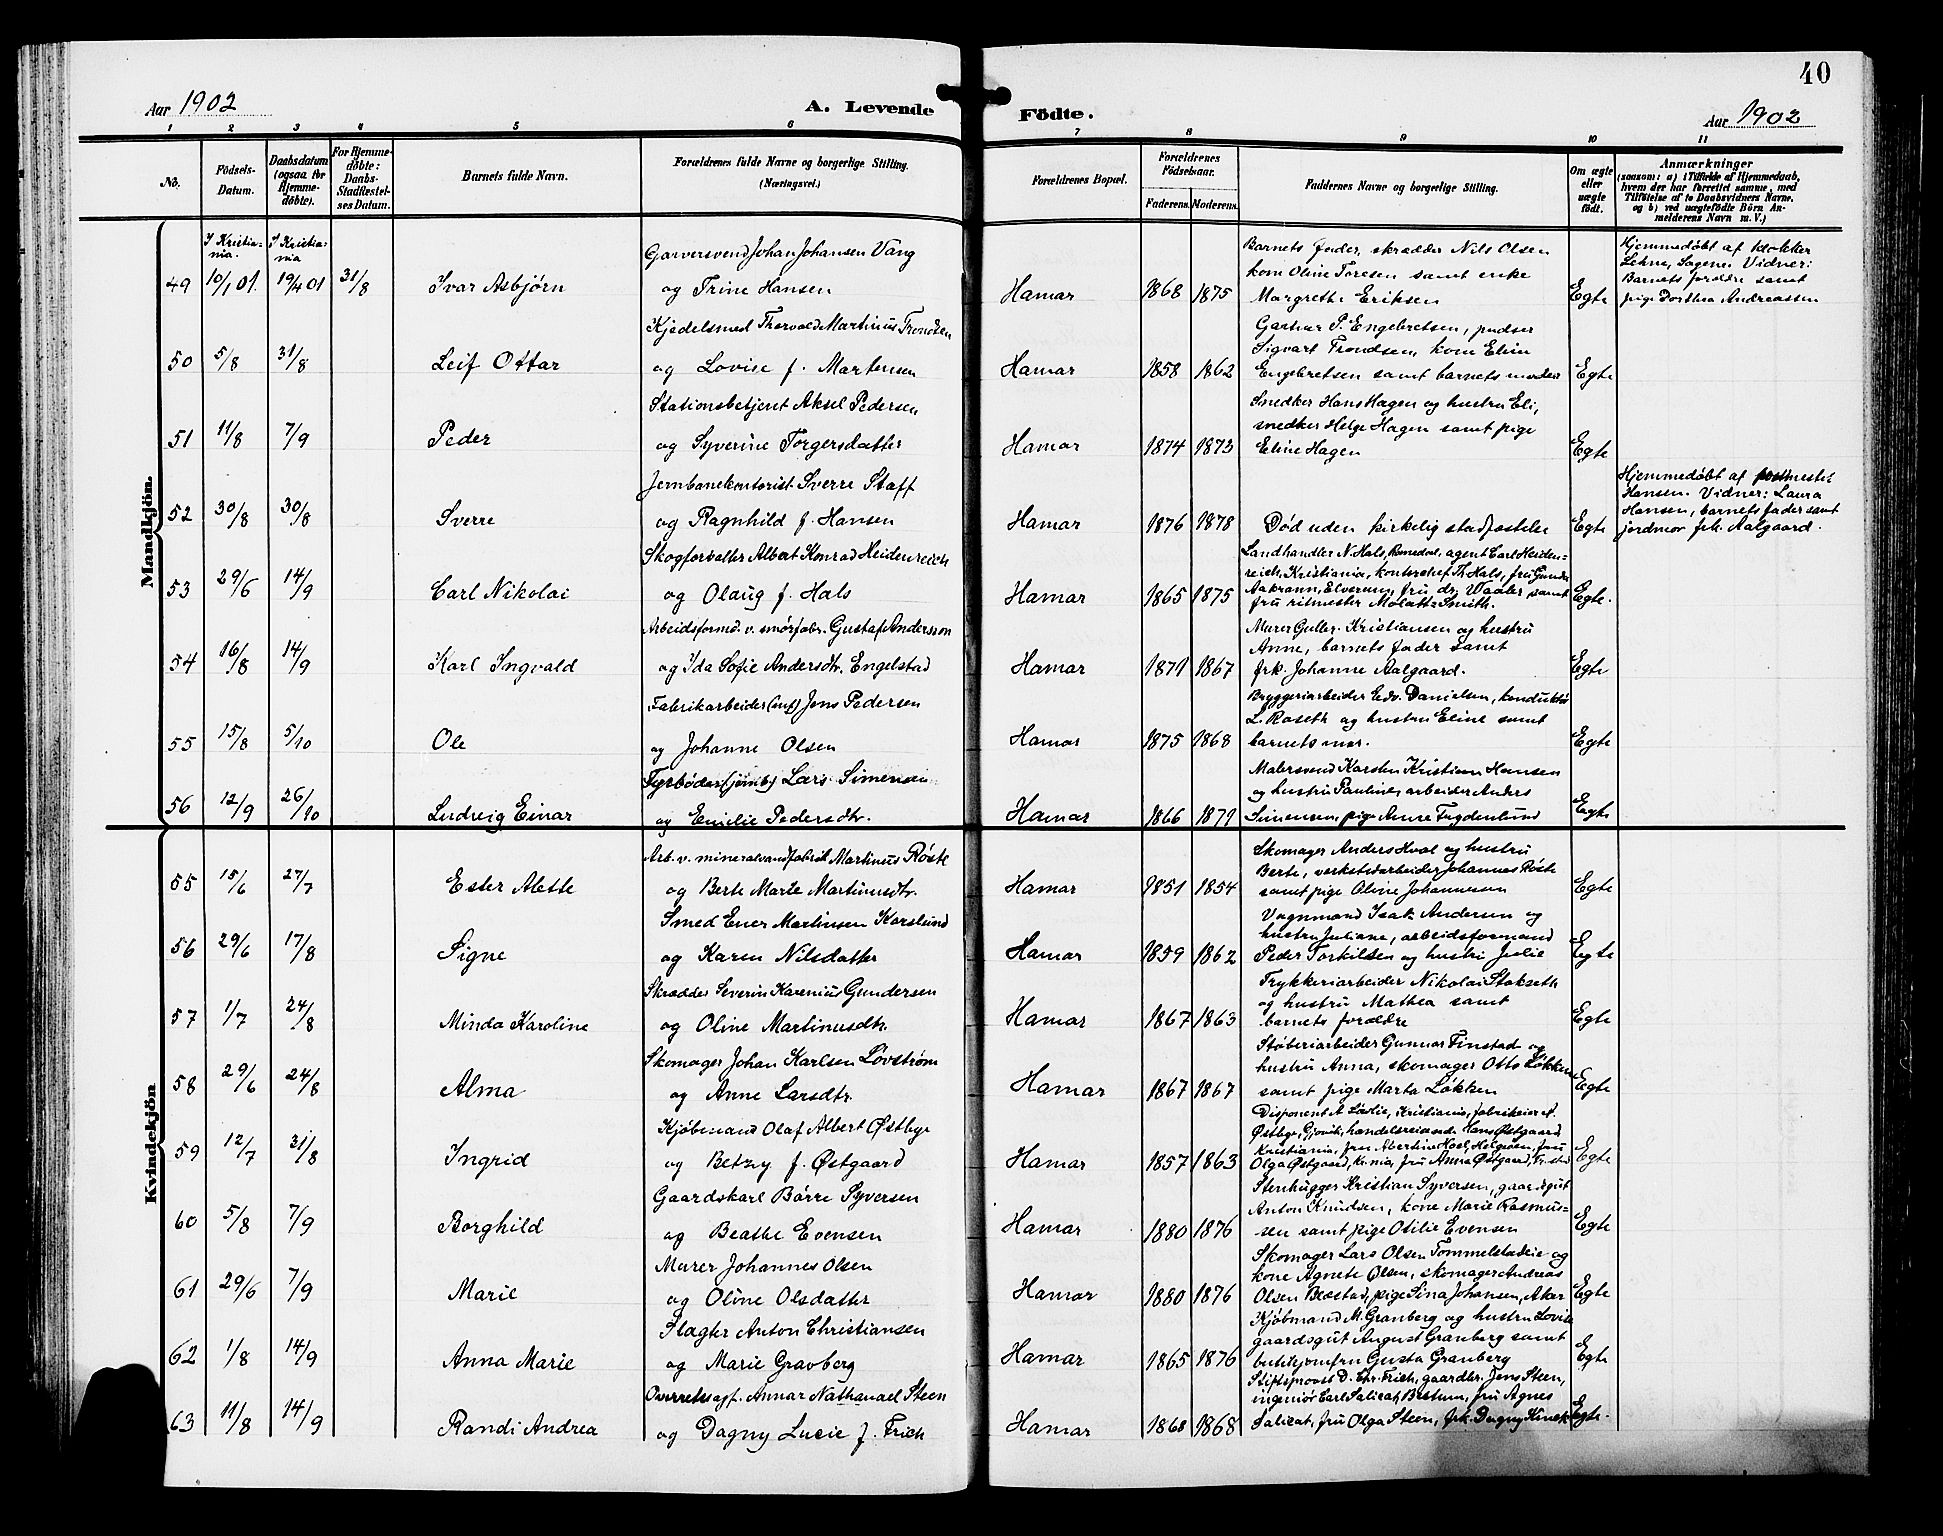 40
Aar 1902
A. Levende
Födte.
Aar 1902
1 2 3 4 5 6 7 8 9 10 11
No.
Födsels-
Datum.
Daabsdatum
(ogsaa for
Hjemme-
döbte).
For Hjemme-
döbte:
Daabs-
Stadfestel-
ses Datum.
Barnets fulde Navn.
Forældrenes fulde Navne og borgerlige Stilling.
(Næringsvei.)
Forældrenes Bopæl.
Forældrenes
Födselsaar.
Faderens. Moderens.
Faddernes Navne og borgerlige Stilling.
Om ægte
eller
uægte
født.
Anmærkninger
(saasom: a) i Tilfælde af Hjemmedaab,
hvem der har forrettet samme, med
Tilföielse af to Daabsvidners Navne,
og b) ved uægtefödte Börn An-
melderens Navn m. V.)
Mandkjön.
I Kristia-
nia.
I Kristia-
nia
49 10/1 01. 19/4 01 31/8 Ivar Asbjørn
Garversvend Johan Johansen Vang
og Trine Hansen
Hamar 1868 1875
Barnets fader, skrædder Nils Olsen
kone Oline Toresen samt enke
Margrethe Eriksen
Egte
Hjemmedøbt af klokker
Lehne, Sagene. Vidner:
Barnets forældre samt
pige Dorthea Andreassen
50 5/8 31/8 Leif Ottar
Kjedelsmed Thorvald Martinius Trondsen
og Lovise f. Martensen
Hamar 1858 1862
Gartner P. Engebretsen, pudser
Sigvart Trondsen, kone Eline
Engebretsen samt barnets moder
Egte
51 11/8 7/9 Peder
Stationsbetjent Aksel Pedersen
og Syverine Torgersdatter
Hamar 1874 1873
Snedker Hans Hagen og hustru Eli,
snedker Helge Hagen samt pige
Eline Hagen
Egte
52 30/8 30/8 Sverre
Jernbanekontorist Sverre Staff
og Ragnhild f. Hansen
Hamar 1876 1878
Død uden kirkelig stadfæstelse
Egte
Hjemmedøbt af postmester
Hansen. Vidner: Laura
Hansen, barnets fader samt
jordmor frk. Aalgaard.
53 29/6 14/9 Carl Nikolai
Skogforvalter Albert Konrad Heidenreich
og Olaug f. Hals
Hamar 1865 1875
Landhandler N. Hals, Romedal, agent Carl Heiden-
reich, Kristiania, kontorchef Th. Hals, fru Gunda
Aakrann, Elverum, fru dr. Waaler samt
fru ritmester Molatt-Smith.
Egte.
54 16/8 14/9 Karl Ingvald
Arbeidsformd. v. smørfabr. Gustaf Andersson
og Ida Sofie Andersdtr. Engelstad
Hamar 1871 1867
Murer Gullbr. Kristiansen og hustru
Anne, barnets fader samt
frk. Johanne Aalgaard.
Egte
55 15/8 5/10 Ole
Fabrikarbeider Jens Pedersen
og Johanne Olsen
Hamar 1875 1868
Bryggeriarbeider Edv. Danielsen, konduktør
L. Roseth og hustru Eline samt
barnets mor.
Egte
56 12/9 26/10 Ludvig Einar
Fyrbøder (jernb.) Lars Simensen
og Emilie Pedersdtr.
Hamar 1866 1879
Malersvend Karsten Kristian Hansen
og hustru Pauline, arbeider Anders
Simensen, pige Anne Frydenlund
Egte
Kvindekjön
55 15/6 27/7 Ester Alette
Arb. v. mineralvandfabrik Martinus Røste
og Berte Marie Martinusdtr.
Hamar 1851 1854
Skomager Anders Hval og hustru
Berte, verkstedarbeider Johannes Røste
samt pige Oline Johannesen
Egte
56 29/6 17/8 Signe
Smed Ener Martinsen Karslund
og Karen Nilsdatter
Hamar 1859 1862
Vognmand Isak Andersen og
hustru Juliane, arbeidsformand
Peder Torkilsen og hustru Julie
Egte
57 1/7 24/8 Minda Karoline
Skrædder Severin Karenius Gundersen
og Oline Martinusdtr.
Hamar 1867 1863
Trykkeriarbeider Nikolai Stokseth
og hustru Mathea samt
barnets forældre
Egte
58 29/6 24/8 Alma
Skomager Johan Karlsen Lövstrøm
og Anne Larsdtr.
Hamar 1867 1867
Støberiarbeider Gunnar Finstad og
hustru Anna, skomager Otto Løkken
samt pige Marta Løkken
Egte
59 12/7 31/8 Ingrid
Kjøbmand Olaf Albert Østbye
og Betzy f. Østgaard
Hamar 1857 1863
Disponent A. Løvlie, Kristiania, fabrikeier A.
Østbye, Gjøvik, handelsreisende Hans Østgaard
Kristiania, fru Albertine Hoel, Helgøen, fru
Olga Østgaard, Kr.nia, fru Anna Østgaard,
Egte
60 5/8 7/9 Borghild
Gaardskarl Børre Syversen
og Beathe Evensen
Hamar 1880 1876
Stenhugger Kristian Syversen, gaardsgut
Anton Knudsen, kone Marie Rasmus-
sen samt pige Otilie Evensen
Egte
61 29/6 7/9 Marie
Murer Johannes Olsen
og Oline Olsdatter
Hamar 1880 1876
Skomager Lars Olsen Tommelstadeie og
kone Agnete Olsen, skomager Andreas
Olsen Blæstad, pige Sina Johansen, Aker
Egte
62 1/8 14/9 Anna Marie
Slagter Anton Christiansen
og Marie Gravberg
Hamar 1865 1876
Kjøbmand M. Granberg og hustru Lovise
gaardsgut August Granberg samt
butikjomfru Gusta Granberg
Egte
63 11/8 14/9 Randi Andrea
Overretssagf. Annar Nathanael Steen
og Dagny Lucie f. Frich
Hamar 1868 1868
Stiftsprovst D. Chr. Frich, gaardbr. Jens Steen,
ingeniør Carl Salicat, Bestum, fru Agnes
Salicat, fru Olga Steen, frk. Dagny
Egte.